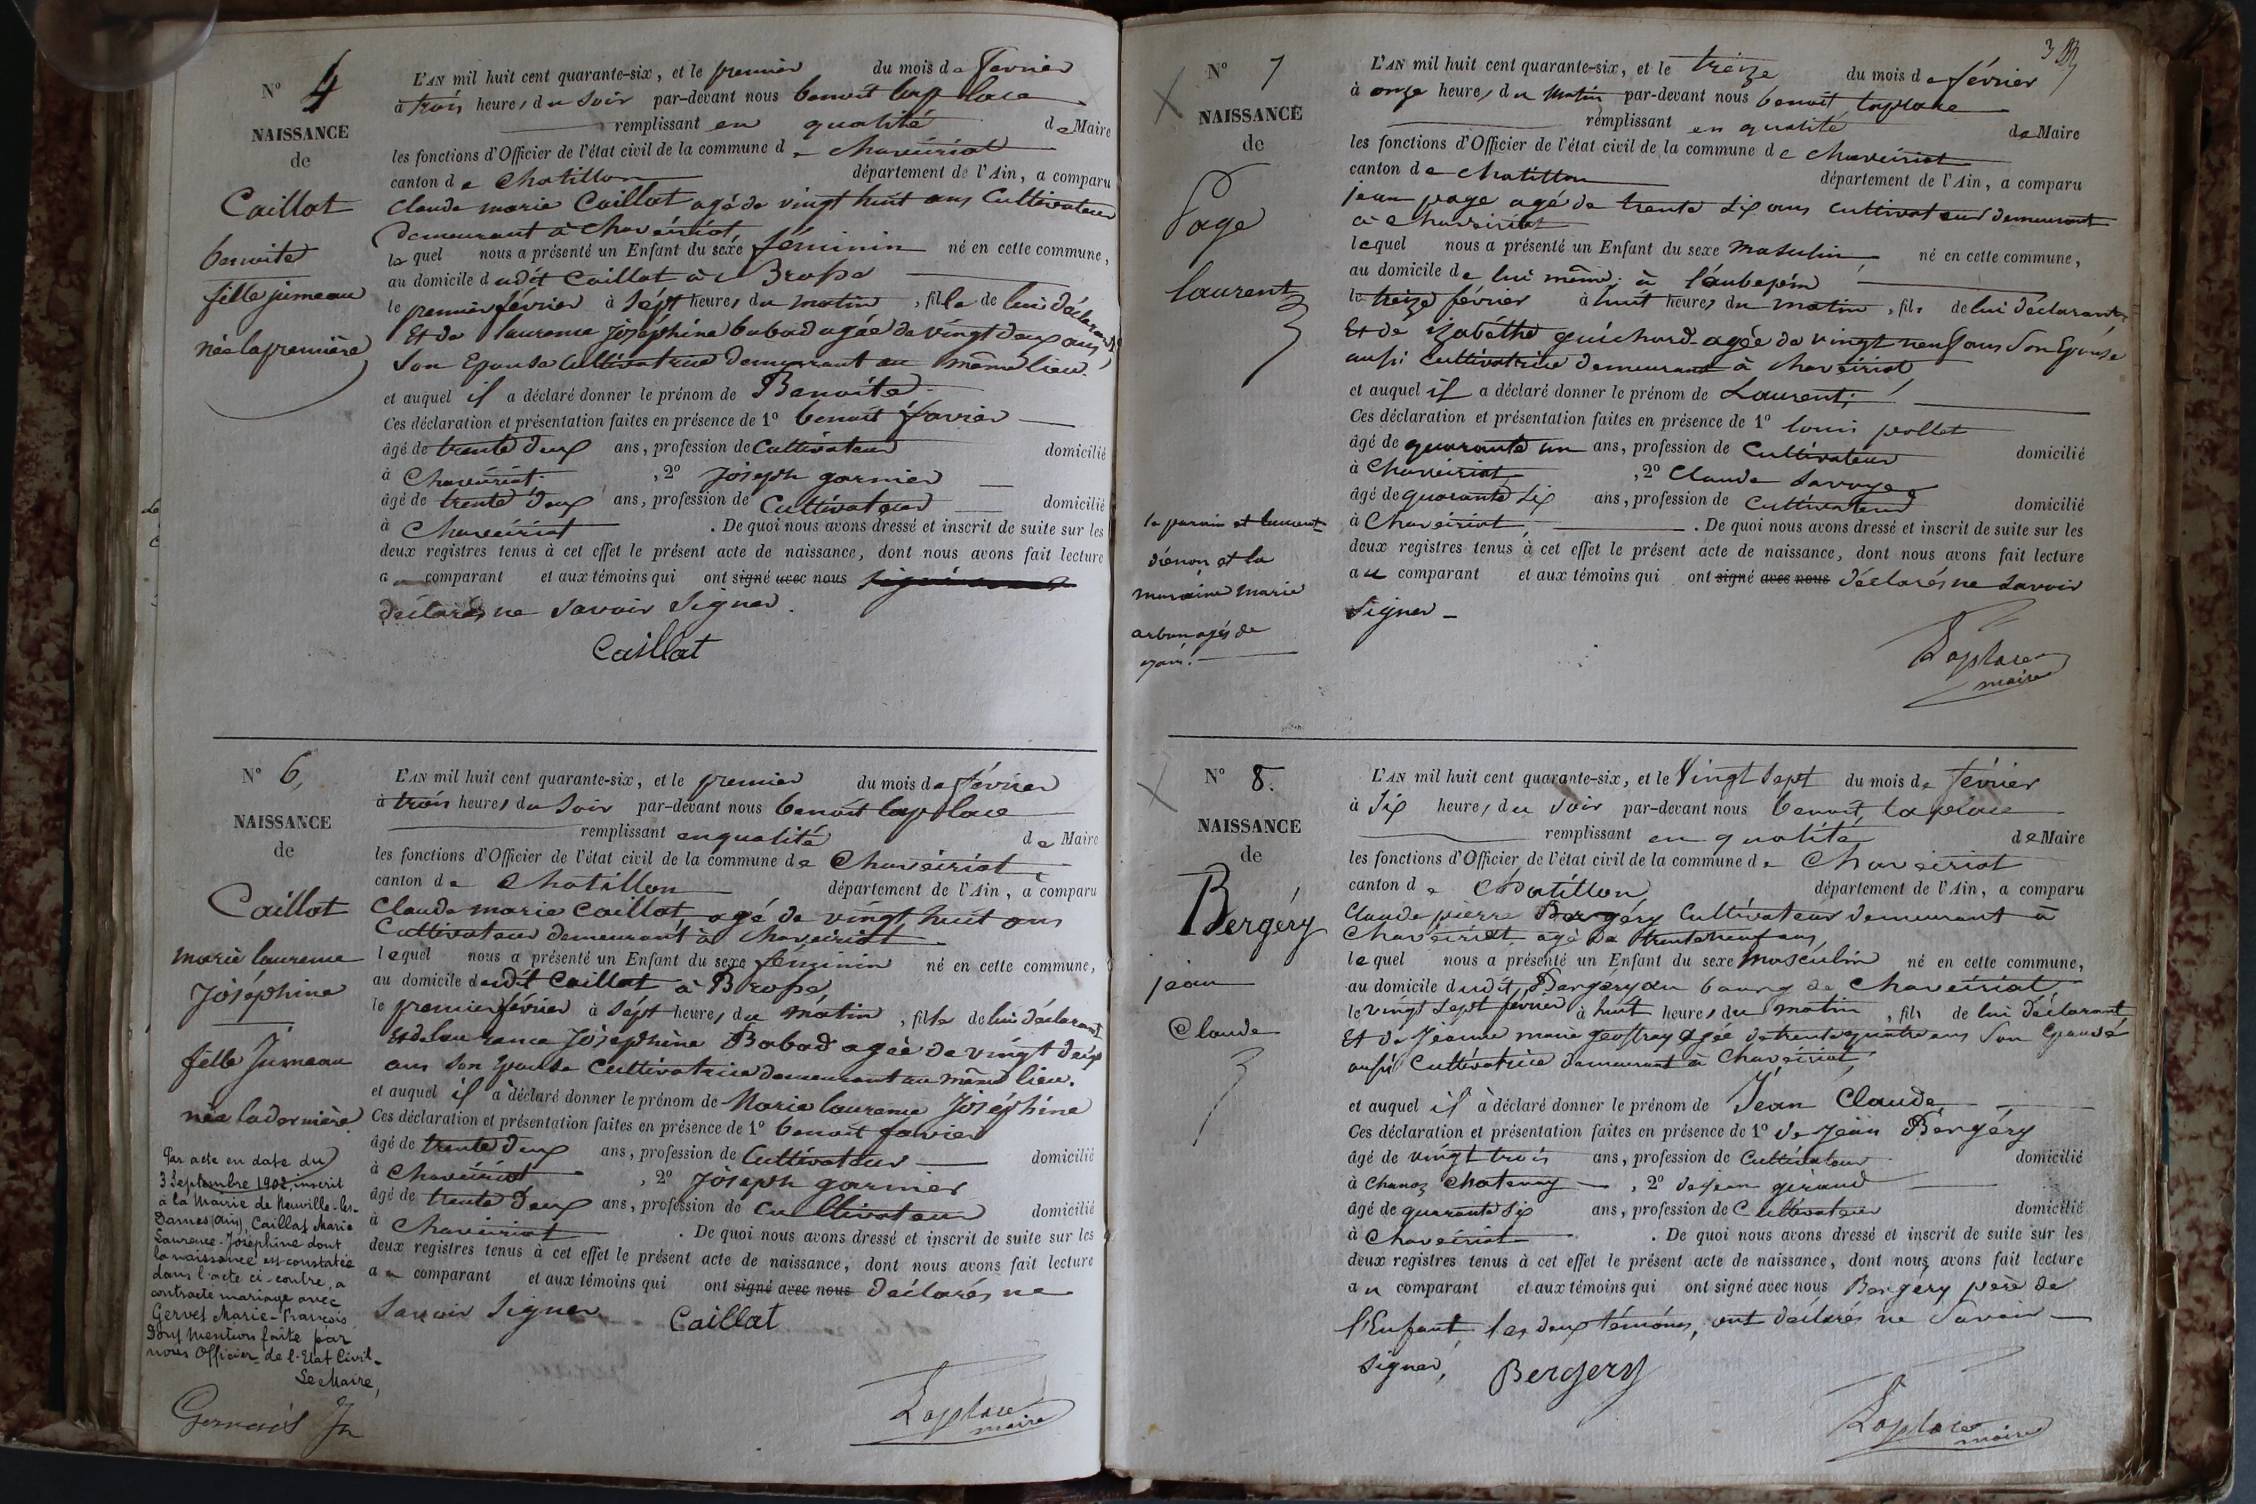 N° 4
NAISSANCE
de
Caillat
benoite
fille jumeau
née la première
L'AN mil huit cent quarante-six, et le premier du mois de fevrier
à trois heures du Soir par-devant nous benoit laplace
remplissant en qualité de Maire
les fonctions d'Officier de l'état civil de la commune de Chaveiriat
canton de Chatillon département de l'Ain, a comparu
Claude marie Caillat agé de vingt huit ans Cultivateur
demeurant à chavéiriat
lequel nous a présenté un Enfant du sexe féminin né en cette commune,
au domicile dudit Caillat à Brosse
le premier février à sept heures du matin, fille de lui déclarant
Et de laurence joséphine babad agée de vingt deux ans
Son Epouse Cultivatrice demeurant au même lieu.
et auquel il a déclaré donner le prénom de Benoite
Ces déclaration et présentation faites en présence de 1° benoit favier
âgé de trente deux ans, profession de Cultivateur domicilié
à Chaveiriat, 2° Joseph garnier
âgé de trente deux ans, profession de Cultivateur domicilié
à Chaveiriat. De quoi nous avons dressé et inscrit de suite sur les
deux registres tenus à cet effet le présent acte de naissance, dont nous avons fait lecture
au comparant et aux témoins qui ont signé avec nous
déclarés ne Savoir Signer.
Caillat
N° 6,
NAISSANCE
de
Caillat
marie laurence
Joséphine
fille Jumeau
née la dernière
Par acte en date du
3 Septembre 1902, inscrit
à la Mairie de Neuville-les-
Dames (Ain), Caillat Marie
Laurence-Joséphine dont
la naissance est constatée
dans l'acte ci-contre, a
contracté mariage avec
Gervet Marie-François
Dont Mention faite par
nous Officier de l'Etat Civil-
Le Maire,
L'AN mil huit cent quarante-six, et le premier du mois de février
à trois heures du Soir par-devant nous benoit laplace
remplissant en qualité de Maire
les fonctions d'Officier de l'état civil de la commune de Chavéiriat
canton de Chatillon département de l'Ain, a comparu
Claude marie Caillat, agé de vingt huit ans
Cultivateur demeurant à chaveiriat
lequel nous a présenté un Enfant du sexe féminin né en cette commune,
au domicile dudit Caillat à Brosse
le premier février à sépt heures du matin, fille de lui déclarant
Et de laurance Joséphine Babad agée de vingt deux
ans son Epouse Cultivatrice demeurant au même lieu.
et auquel il a déclaré donner le prénom de Marie laurence Joséphine
Ces déclaration et présentation faites en présence de 1° benoit favier
âgé de trente deux ans, profession de Cultivateur domicilié
à Chaveiriat, 2° Joseph garnier
âgé de trente deux ans, profession de Cultivateur domicilié
à Chaveiriat. De quoi nous avons dressé et inscrit de suite sur les
deux registres tenus à cet effet le présent acte de naissance, dont nous avons fait lecture
au comparant et aux témoins qui ont signé avec nous déclarés ne
Savoir Signer
Caillat
Laplace
maire
N° 7
NAISSANCE
de
Page
laurent
le parain et laurent
diénon et la
maraine marie
L'AN mil huit cent quarante-six, et le treize du mois de février
à onze heures du matin par-devant nous benoit laplace
remplissant en qualité de Maire
les fonctions d'Officier de l'état civil de la commune de Chaveiriat
canton de Chatillon département de l'Ain, a comparu
jean page agé de trente six ans cultivateur demeurant
à Chaveiriat
lequel nous a présenté un Enfant du sexe masculin né en cette commune,
au domicile de lui même à l'aubepin
le treize février à huit heures du matin, fils de lui déclarant
Et de Izabéthe guichard agée de vingt neuf ans Son Epouse
aussi Cultivatrice demeurant à Chaveiriat
et auquel il a déclaré donner le prénom de Laurent;
Ces déclaration et présentation faites en présence de 1° louis pollet
âgé de quarante un ans, profession de Cultivateur domicilié
à Chaveiriat, 2° Claude Savoye
âgé de quarante six ans, profession de Cultivateur domicilié
à Chaveiriat. De quoi nous avons dressé et inscrit de suite sur les
deux registres tenus à cet effet le présent acte de naissance, dont nous avons fait lecture
au comparant et aux témoins qui ont signé avec nous déclarés ne Savoir
Signer
Laplace
maire
N° 8.
NAISSANCE
de
Bergéry
jean
Claude
L'AN mil huit cent quarante-six, et le Vingt sept du mois de février
à Six heures du Soir par-devant nous benoit laplace
remplissant en qualité de Maire
les fonctions d'Officier de l'état civil de la commune de Chaveiriat
canton de Chatillon département de l'Ain, a comparu
Claude pierre Bergéry Cultivateur demeurant à
Chavéiriat agé de trente neuf ans
lequel nous a présenté un Enfant du sexe masculin né en cette commune,
au domicile dudit Bergéry au bourg de Chaveiriat
le vingt sept février à huit heures du matin, fils de lui déclarant
Et de Jeanne marie geoffray agée de trente quatre ans Son Epouse
aussi Cultivatrice demeurant à Chaveiriat;
et auquel il à déclaré donner le prénom de Jean Claude
Ces déclaration et présentation faites en présence de 1° de Jean Bergéry
âgé de vingt trois ans, profession de Cultivateur domicilié
à Chanoz Chatenay, 2° de jean giraud
âgé de quarante Six ans, profession de Cultivateur domicilié
à Chaveiriat. De quoi nous avons dressé et inscrit de suite sur les
deux registres tenus à cet effet le présent acte de naissance, dont nous avons fait lecture
au comparant et aux témoins qui ont signé avec nous Bergéry père de
l'Enfant, les deux témoins, ont déclarés ne Savoir
Signer,
Bergery
Laplace
maire